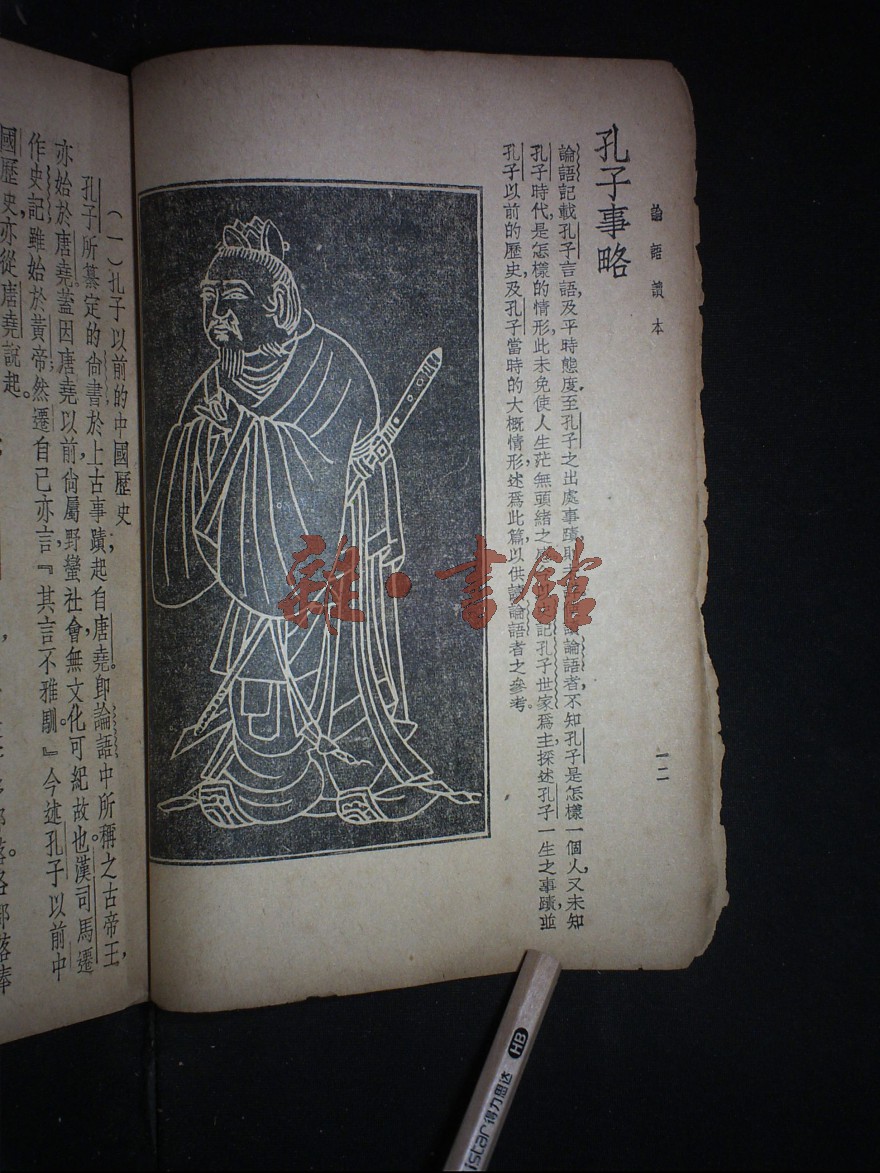 論語讀本
一二
孔子事略
論語記載孔子言語，及平時態度，至孔子之出處事蹟，則未　　論語者，不知孔子是怎樣一個人，又未知
孔子時代，是怎樣的情形，此未免使人生茫無頭緒之　　記孔子世家爲主，採述孔子一生之事蹟，並
孔子以前的歷史，及孔子當時的大概情形，述爲此篇，以供讀論語者之參考。
雜·書館
（一）孔子以前的中國歷史
孔子所纂定的尙書，於上古事蹟，起自唐堯。卽論語中所稱之古帝王，
亦始於唐堯，蓋因唐堯以前，尙屬野蠻社會，無文化可紀故也。漢司馬遷
作史記，雖始於黃帝，然遷自己亦言『其言不雅馴。』今述孔子以前中
國歷史，亦從唐堯說起。
部落，各部落奉
HB
istar得力思达